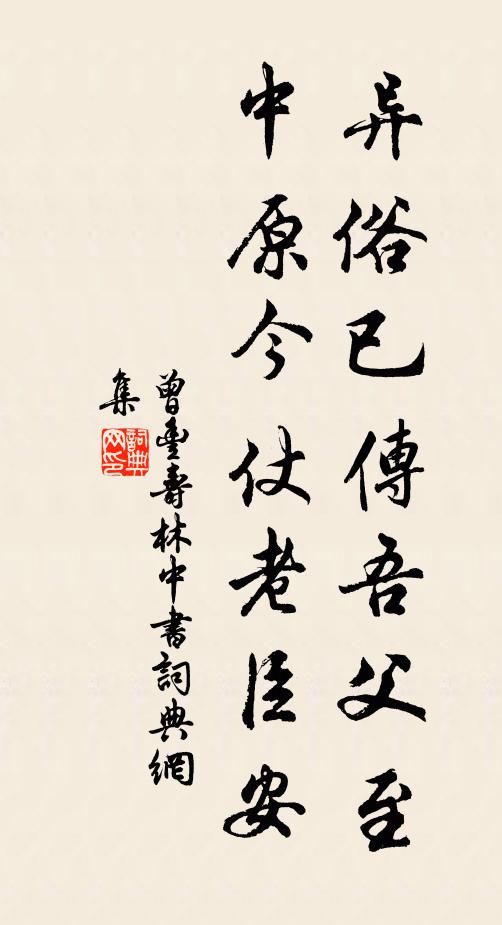 异俗已傳吾父至
中原今仗老臣安
曾豐壽林中書詞典網
集
詞典
网印